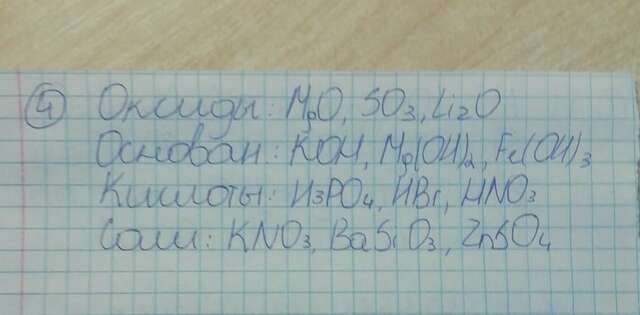 ④ Оксиды: MgO, SO₃, Li₂O
Основан.: KOH, Mg(OH)₂, Fe(OH)₃
Кислоты: H₃PO₄, HBr, HNO₃
Соли: KNO₃, BaSiO₃, ZnSO₄